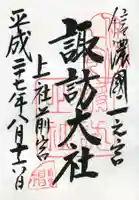 信濃國一之宮
諏訪大社
上社前宮
平成二十七年八月十六日